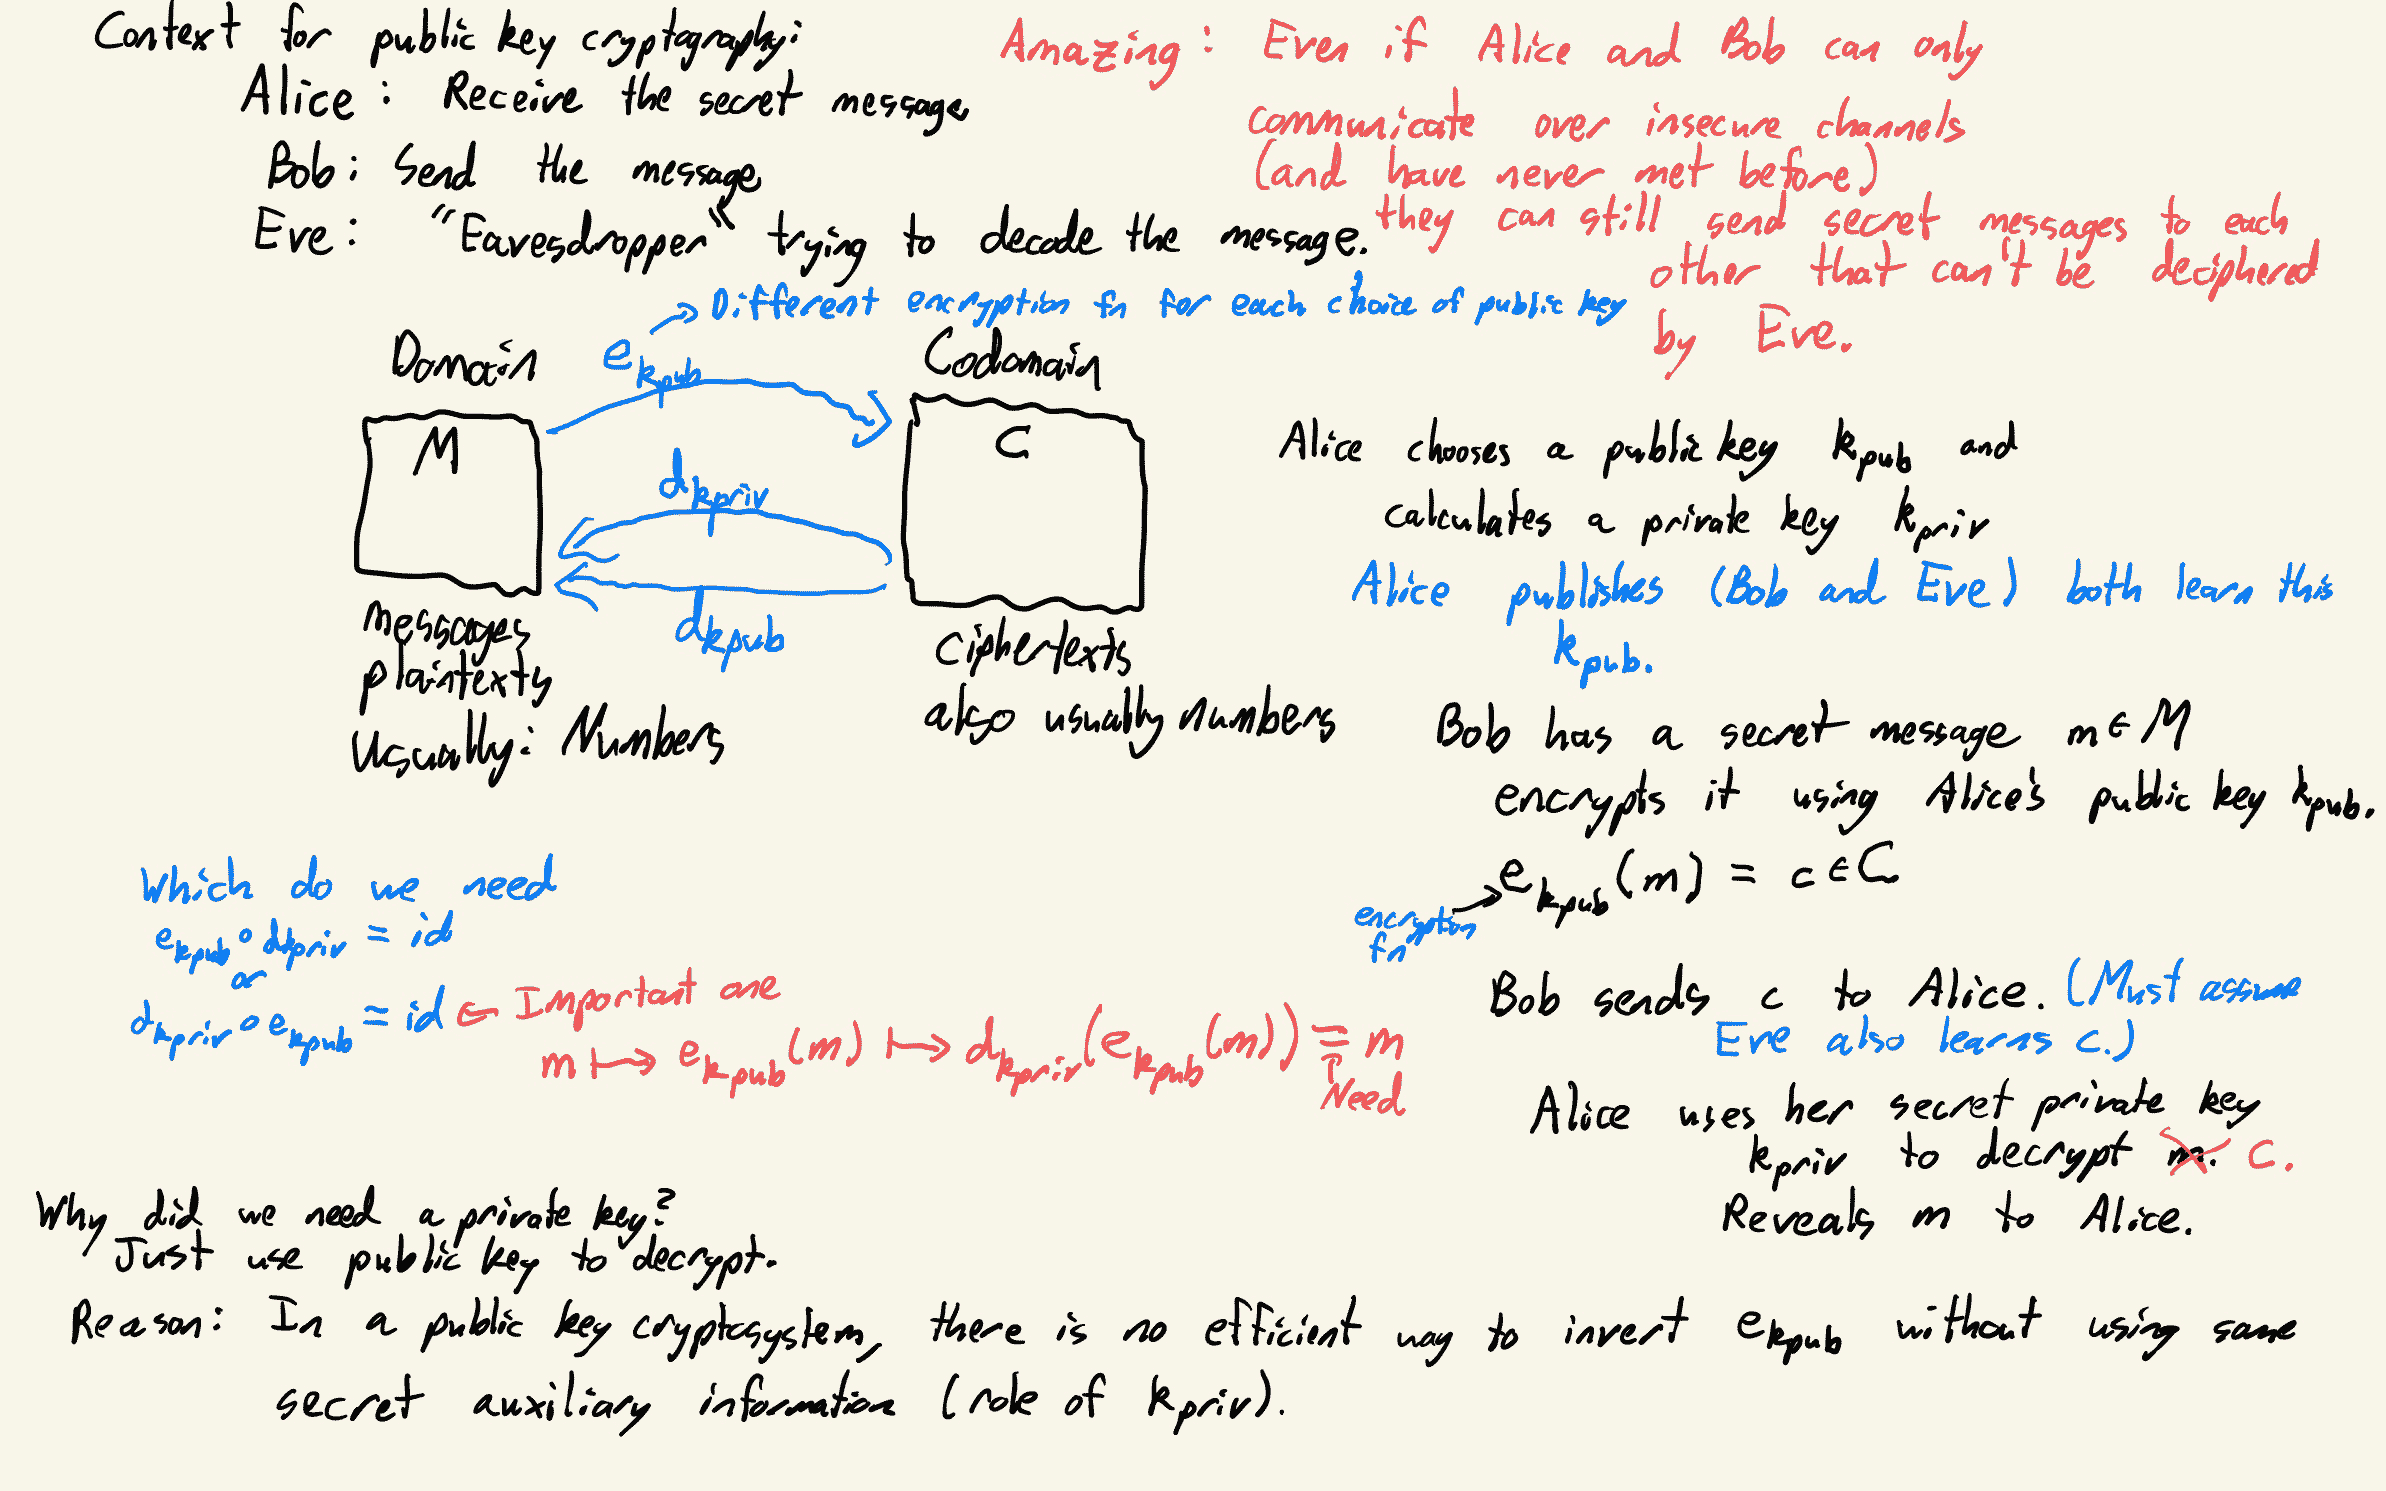 Context for public key cryptography:
Alice: Receive the secret message
Bob: Send the message
Eve: "Eavesdropper" trying to decode the message.
Amazing: Even if Alice and Bob can only
communicate over insecure channels
(and have never met before)
they can still send secret messages to each
other that can't be deciphered
by Eve.
→ Different encryption fn for each choice of public key
Domain
e_kpub
Codomain
M
C
d_kpriv
d_kpub
messages
plaintexts
Usually: Numbers
ciphertexts
also usually numbers
Alice chooses a public key k_pub and
calculates a private key k_priv
Alice publishes (Bob and Eve) both learn this
k_pub.
Bob has a secret message m ∈ M
encrypts it using Alice's public key k_pub.
e_kpub(m) = c ∈ C
encryption
fn
Bob sends c to Alice. (Must assume
Eve also learns c.)
Alice uses her secret private key
k_priv to decrypt m. c.
Reveals m to Alice.
Which do we need
e_kpub ∘ d_kpriv = id
or
d_kpriv ∘ e_kpub = id ← Important one
m ↦ e_kpub(m) ↦ d_kpriv(e_kpub(m)) = m
↑
Need
Why did we need a private key?
Just use public key to decrypt.
Reason: In a public key cryptosystem, there is no efficient way to invert e_kpub without using some
secret auxiliary information (role of k_priv).